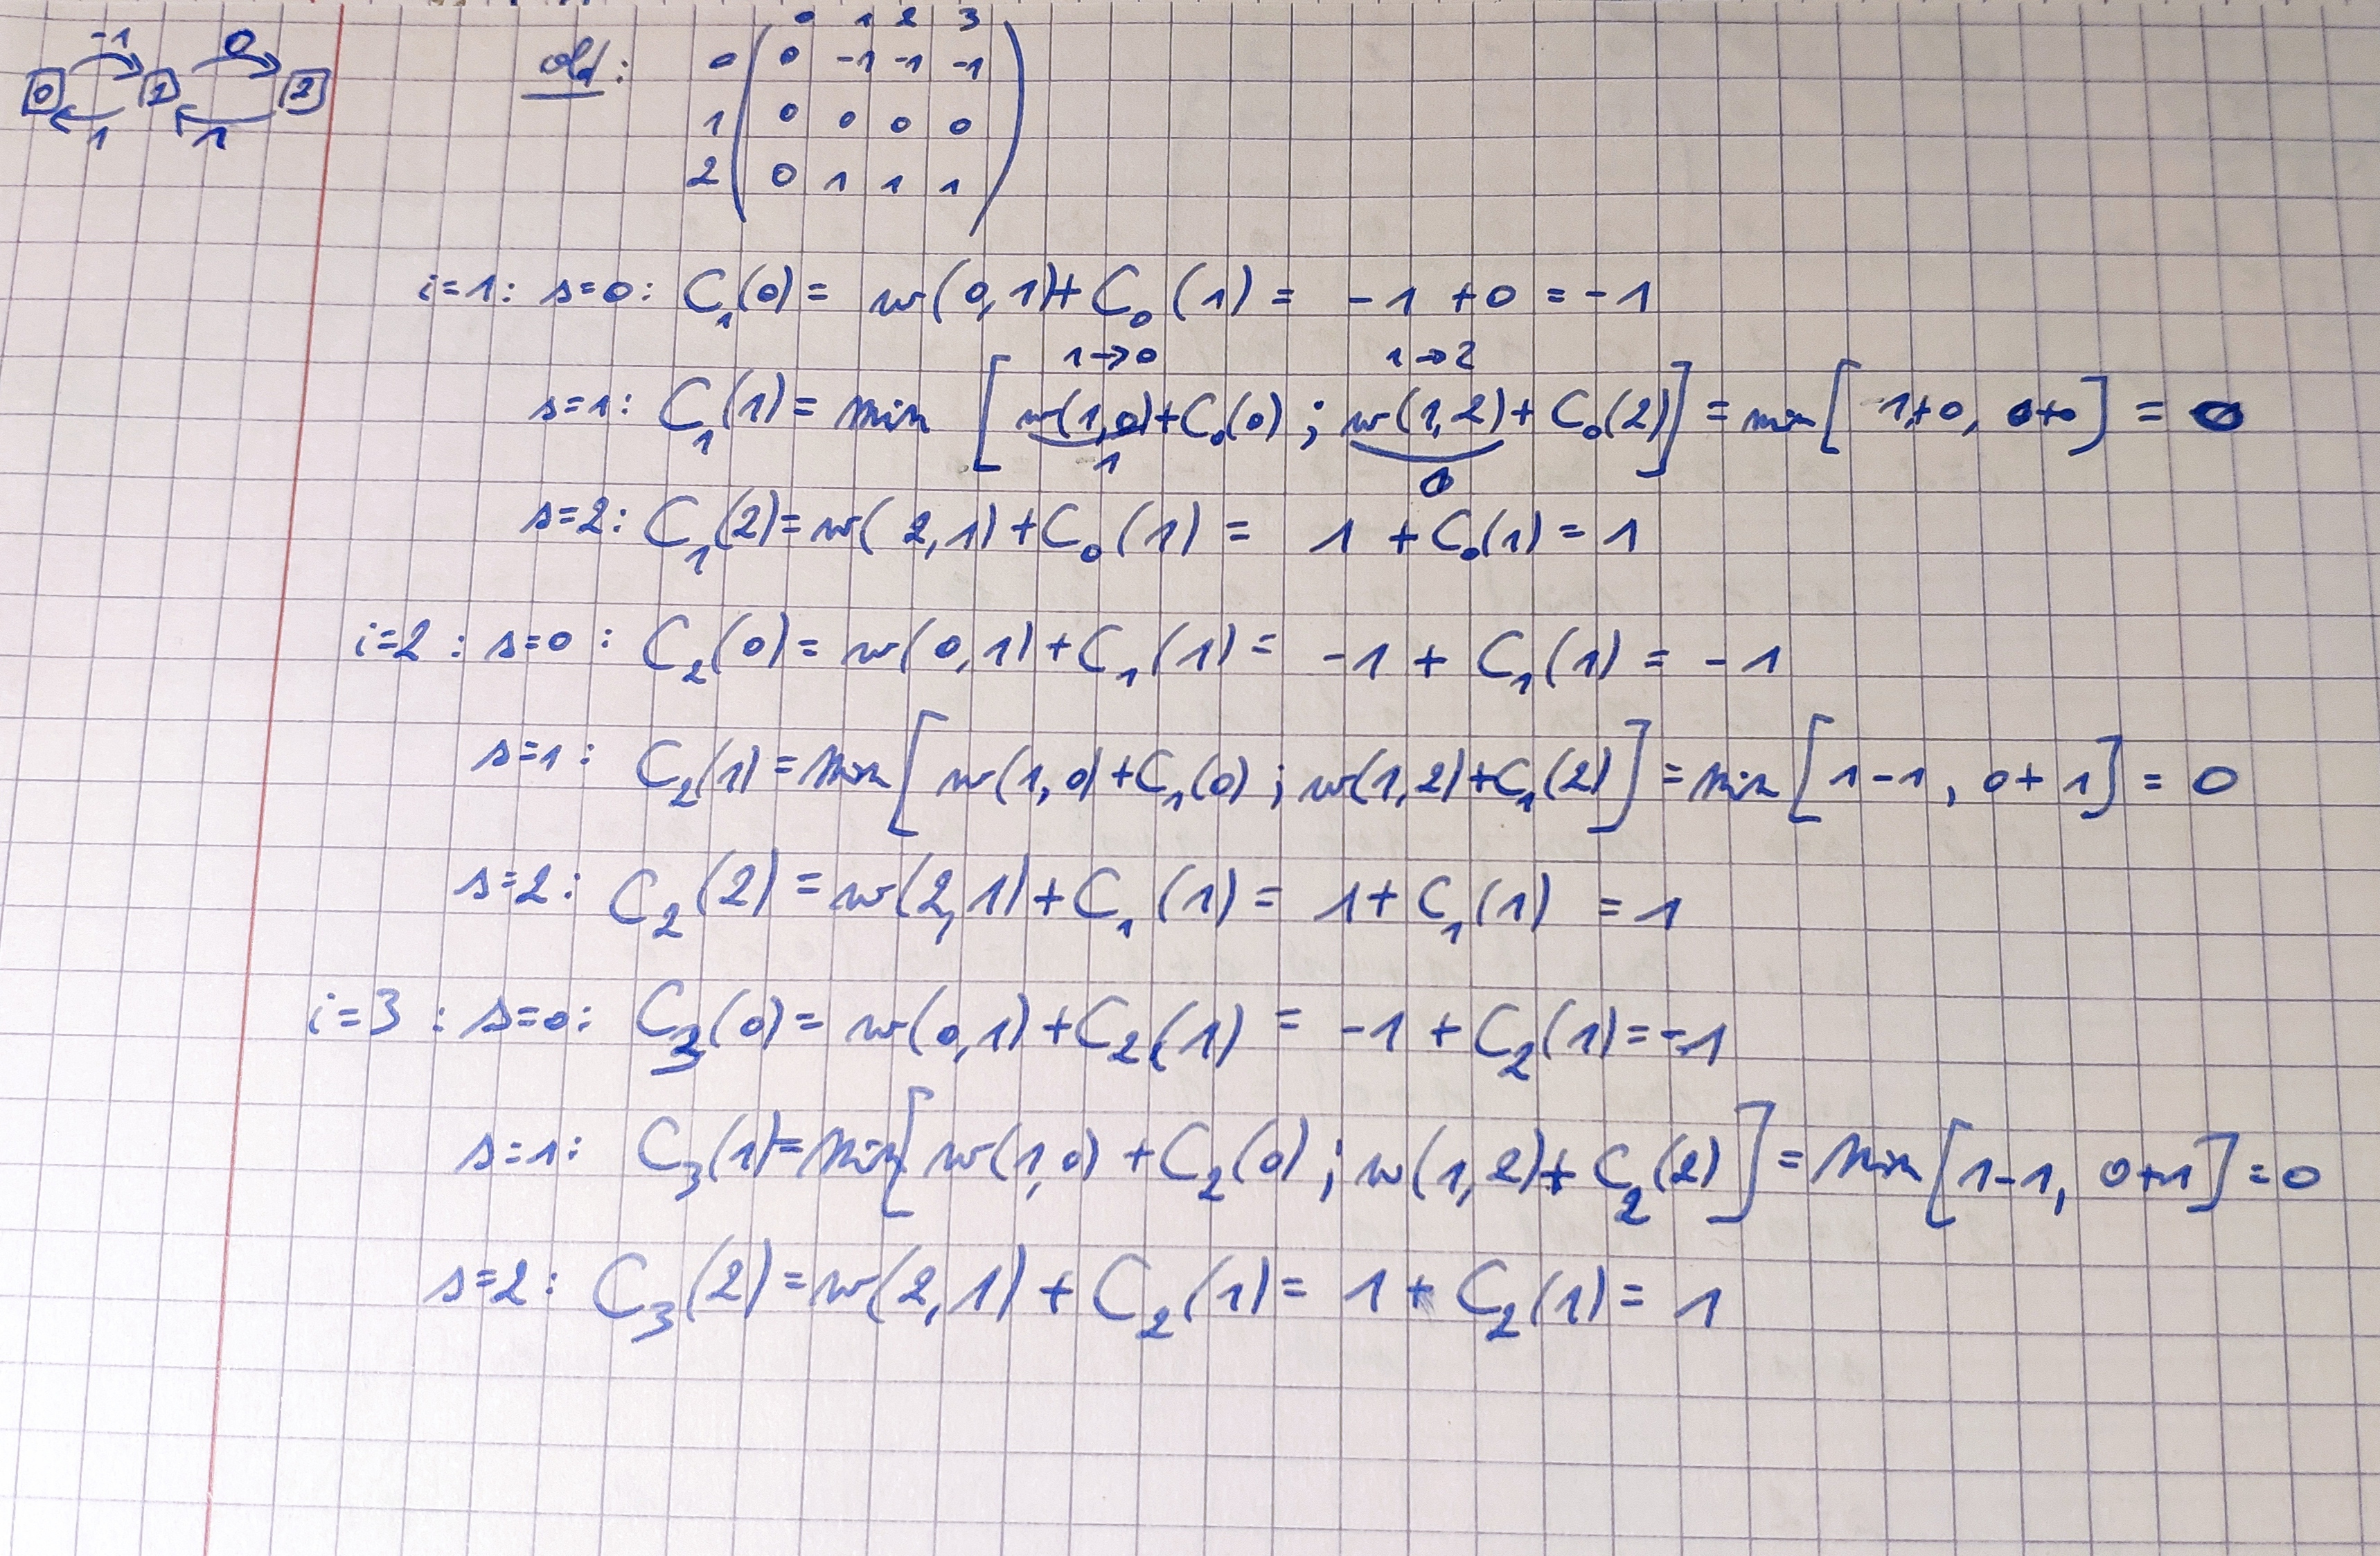 -1 0
0 1 2
1 1
old: 0 1 2 3
0 0 -1 -1 -1
1 0 0 0 0
2 0 1 1 1
i=1: s=0: C₁(0) = w(0,1)+C₀(1) = -1 +0 = -1
1→0 1→2
s=1: C₁(1) = min [w(1,0)+C₀(0) ; w(1,2)+C₀(2)] = min [1+0, 0+0] = 0
1 0
s=2: C₁(2) = w(2,1)+C₀(1) = 1 +C₀(1) = 1
i=2 : s=0 : C₂(0) = w(0,1)+C₁(1) = -1 + C₁(1) = -1
s=1: C₂(1) = min [w(1,0)+C₁(0) ; w(1,2)+C₁(2)] = min [1-1, 0+1] = 0
s=2: C₂(2) = w(2,1)+C₁(1) = 1+C₁(1) = 1
i=3 : s=0: C₃(0) = w(0,1)+C₂(1) = -1 +C₂(1) = -1
s=1: C₃(1) = min [w(1,0) +C₂(0) ; w(1,2)+ C₂(2)] = min [1-1, 0+1] = 0
s=2: C₃(2) = w(2,1) + C₂(1) = 1 + C₂(1) = 1